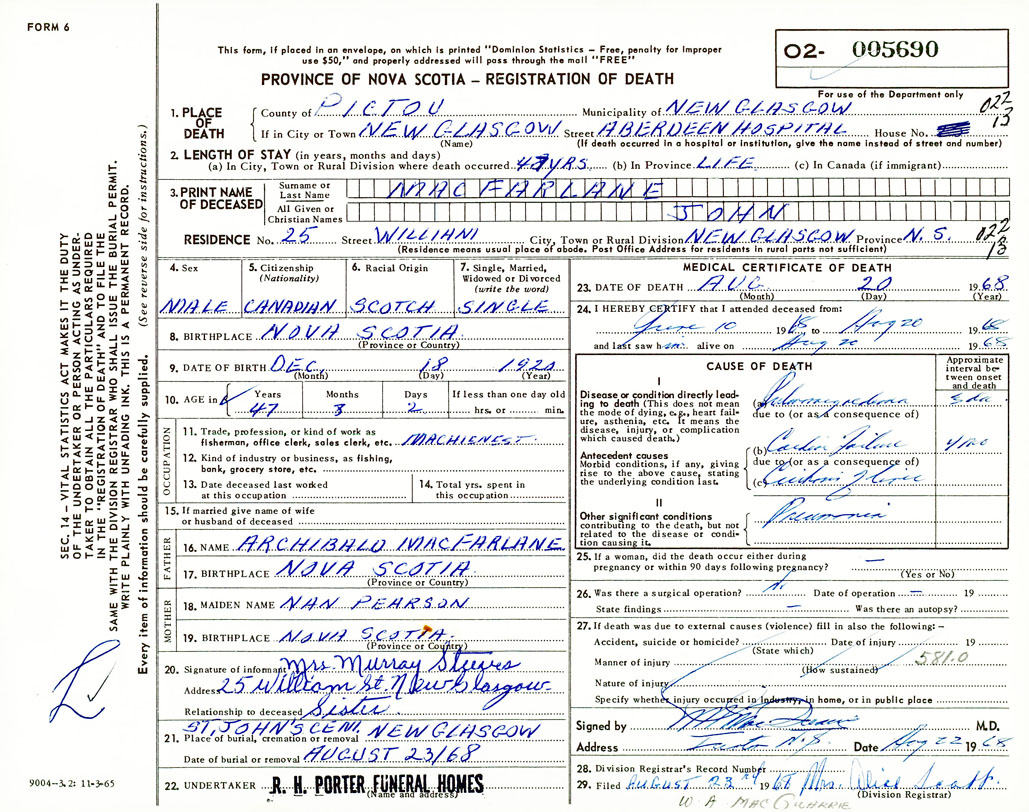 FORM 6
This form, if placed in an envelope, on which is printed "Dominion Statistics – Free, penalty for improper
use $50," and properly addressed will pass through the mail "FREE"
PROVINCE OF NOVA SCOTIA – REGISTRATION OF DEATH
02- 005690
For use of the Department only
022
13
1. PLACE OF DEATH
County of PICTOU Municipality of NEW GLASGOW
If in City or Town NEW GLASGOW Street ABERDEEN HOSPITAL House No.
(Name) (If death occurred in a hospital or institution, give the name instead of street and number)
2. LENGTH OF STAY (in years, months and days)
(a) In City, Town or Rural Division where death occurred 47 YRS. (b) In Province LIFE (c) In Canada (if immigrant)
3. PRINT NAME OF DECEASED
Surname or Last Name MACFARLANE
All Given or Christian Names JOHN
RESIDENCE No. 25 Street WILLIAM City, Town or Rural Division NEW GLASGOW Province N.S.
022
13
(Residence means usual place of abode. Post Office Address for residents in rural parts not sufficient)
4. Sex 5. Citizenship (Nationality) 6. Racial Origin 7. Single, Married, Widowed or Divorced (write the word)
MALE CANADIAN SCOTCH SINGLE
8. BIRTHPLACE NOVA SCOTIA
(Province or Country)
9. DATE OF BIRTH DEC. 18 1920
(Month) (Day) (Year)
10. AGE in Years Months Days If less than one day old
47 8 2 hrs. or min.
OCCUPATION
11. Trade, profession, or kind of work as
fisherman, office clerk, sales clerk, etc. MACHIENEST
12. Kind of industry or business, as fishing,
bank, grocery store, etc.
13. Date deceased last worked
at this occupation
14. Total yrs. spent in
this occupation
15. If married give name of wife
or husband of deceased
FATHER
16. NAME ARCHIBALD MACFARLANE
17. BIRTHPLACE NOVA SCOTIA
(Province or Country)
MOTHER
18. MAIDEN NAME NAN PEARSON
19. BIRTHPLACE NOVA SCOTIA
(Province or Country)
20. Signature of informant Mrs. Murray Steeves
Address 25 William St. New Glasgow
Relationship to deceased Sister
ST. JOHN'S CEM. NEW GLASGOW
21. Place of burial, cremation or removal
Date of burial or removal AUGUST 23/68
22. UNDERTAKER R. H. PORTER FUNERAL HOMES
(Name and address)
MEDICAL CERTIFICATE OF DEATH
23. DATE OF DEATH AUG 20 1968
(Month) (Day) (Year)
24. I HEREBY CERTIFY that I attended deceased from:
June 10 1968 to Aug 20 1968
and last saw him alive on Aug 20 1968
CAUSE OF DEATH
Approximate interval between onset and death
I
Disease or condition directly lead-
ing to death (This does not mean
the mode of dying, e.g., heart fail-
ure, asthenia, etc. It means the
disease, injury, or complication
which caused death.)
(a) Pulmonary edema
due to (or as a consequence of
Antecedent causes
Morbid conditions, if any, giving
rise to the above cause, stating
the underlying condition last.
(b) Cardiac Failure
due to (or as a consequence of)
(c) Cirrhosis of liver
II
Other significant conditions
contributing to the death, but not
related to the disease or condi-
tion causing it.
Pneumonia
25. If a woman, did the death occur either during
pregnancy or within 90 days following pregnancy? —
(Yes or No)
26. Was there a surgical operation? No Date of operation — 19
State findings — Was there an autopsy?
27. If death was due to external causes (violence) fill in also the following: –
Accident, suicide or homicide? Date of injury 19
(State which)
Manner of injury 581.0
(How sustained)
Nature of injury
Specify whether injury occurred in industry, in home, or in public place
Signed by M.D.
Address N.S. Date Aug 22 1968
28. Division Registrar's Record Number
29. Filed AUGUST 23rd 1968 Mrs. Alice Scott
(Division Registrar)
W A MAC
SEC. 14 – VITAL STATISTICS ACT MAKES IT THE DUTY
OF THE UNDERTAKER OR PERSON ACTING AS UNDER-
TAKER TO OBTAIN ALL THE PARTICULARS REQUIRED
IN THE "REGISTRATION OF DEATH" AND TO FILE THE
SAME WITH THE DIVISION REGISTRAR WHO SHALL ISSUE THE BURIAL PERMIT.
WRITE PLAINLY WITH UNFADING INK. THIS IS A PERMANENT RECORD.
Every item of information should be carefully supplied. (See reverse side for instructions.)
9004–3.2: 11-3-65